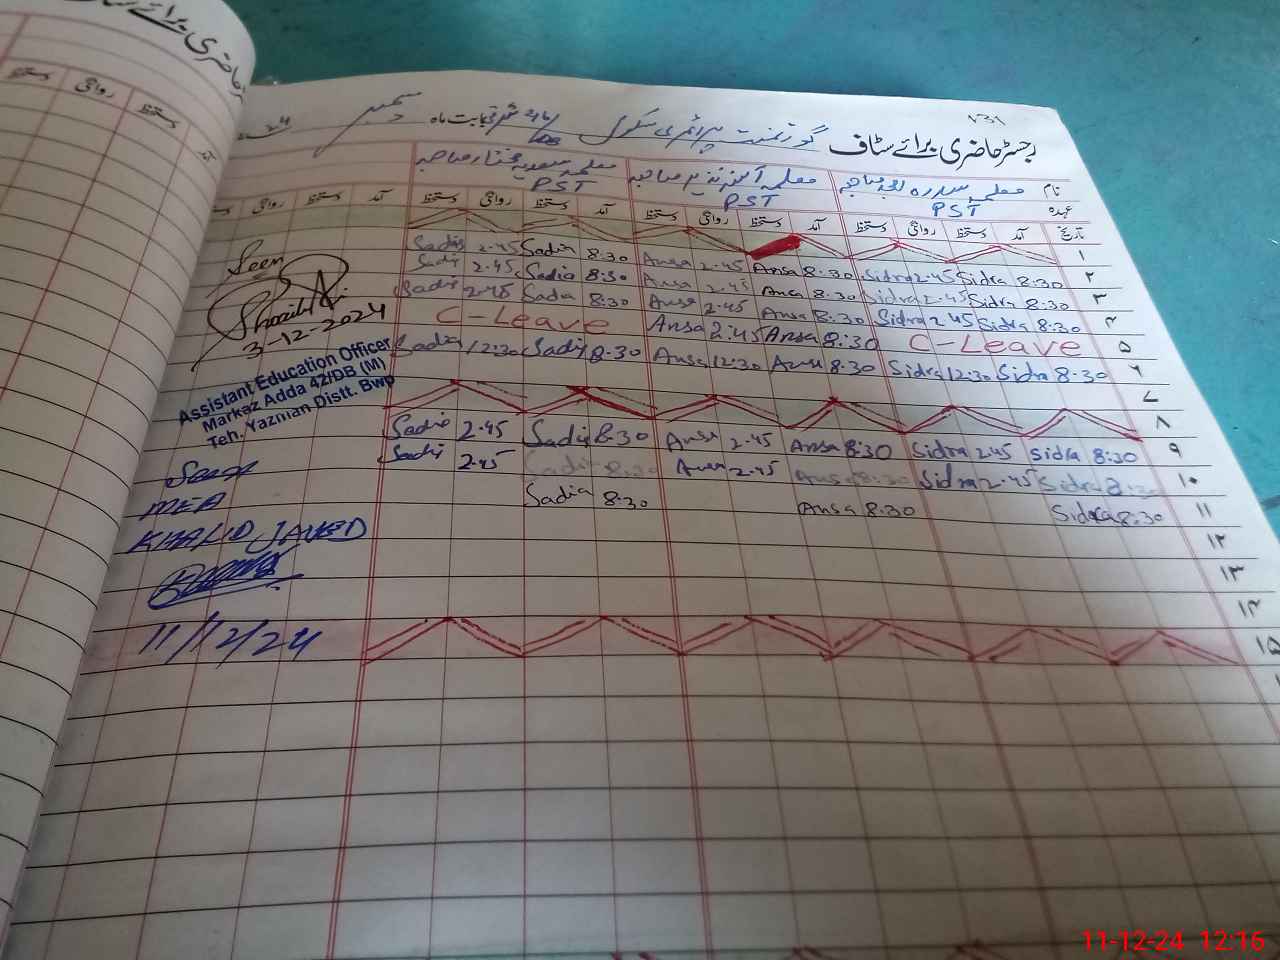 ۱۳۱
رجسٹر حاضری برائے سٹاف گورنمنٹ پرائمری سکول بابت ماہ دسمبر
نام معلمہ سدرہ صاحبہ معلمہ صاحبہ معلمہ سعدیہ مختار صاحبہ
عہدہ PST PST PST
تاریخ آمد دستخط روانگی دستخط آمد دستخط روانگی دستخط آمد دستخط روانگی دستخط آمد دستخط روانگی
۱
Sadia 2.45 Sadia 8:30 Ansa 2.45 Ansa 8.30 Sidra 2.45 Sidra 8:30 ۲
Sadia 2.45 Sadia 8:30 Ansa 2.45 Ansa 8:30 Sidra 2.45 Sidra 8:30 ۳
Sadia 2.45 Sadia 8:30 Ansa 2.45 Ansa 8.30 Sidra 2.45 Sidra 8:30 ۴
C-Leave Ansa 2:45 Ansa 8:30 C-Leave ۵
Sadia 12:30 Sadia 8.30 Ansa 12:30 Ansa 8:30 Sidra 12:30 Sidra 8:30 ۶
۷
۸
Sadia 2.45 Sadia 8:30 Ansa 2.45 Ansa 8:30 Sidra 2.45 Sidra 8:30 ۹
Sadia 2.45 Sadia 8:30 Ansa 2.45 Ansa 8:30 Sidra 2.45 Sidra 8:30 ۱۰
Sadia 8:30 Ansa 8:30 Sidra 8:30 ۱۱
۱۲
۱۳
۱۴
۱۵
Seen
Shoaib Ali
3-12-2024
Assistant Education Officer
Markaz Adda 42/DB (M)
Teh. Yazman Distt. Bwp
Seen
MEA
KHALID JAVED
11/12/24
رجسٹر حاضری برائے سٹاف
دستخط روانگی دستخط آمد
11-12-24 12:16